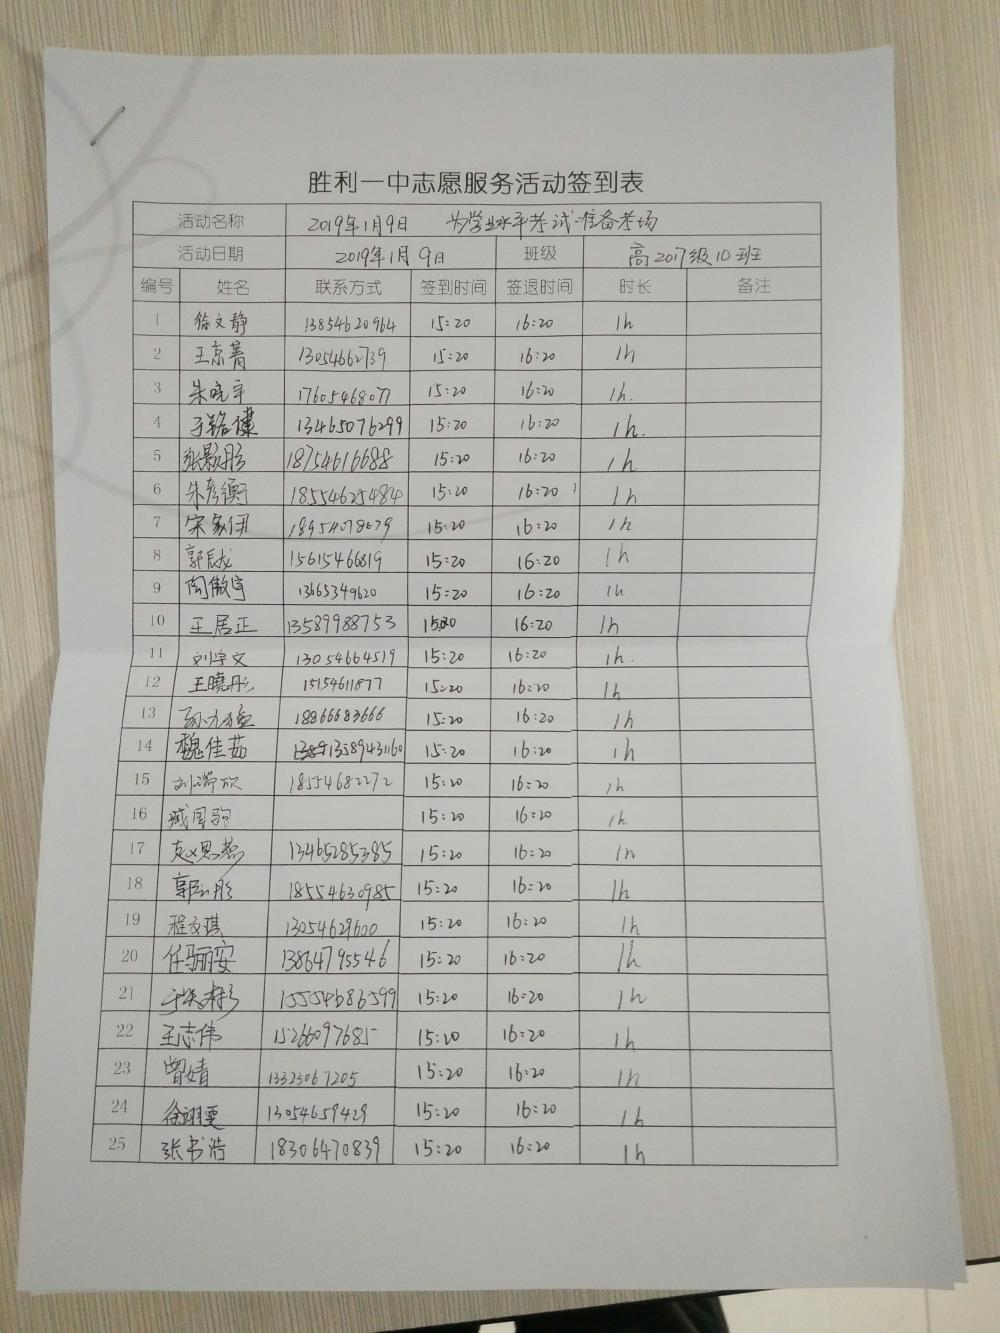 胜利一中志愿服务活动签到表
活动名称 2019年1月9日 为学业水平考试准备考场
活动日期 2019年1月9日 班级 高2017级10班
编号 姓名 联系方式 签到时间 签退时间 时长 备注
1 徐文静 13854620964 15:20 16:20 1h
2 王京菁 13054662739 15:20 16:20 1h
3 朱晓宇 17605468077 15:20 16:20 1h.
4 13465076299 15:20 16:20 1h.
5 张影彤 18754616688 15:20 16:20 1h
6 朱彦衡 18554625484 15:20 16:20 1h
7 宋家伊 15:20 16:20 1h
8 郭辰龙 15615466819 15:20 16:20 1h
9 陶傲宇 13665349620 15:20 16:20 1h
10 王居正 13589988753 15:20 16:20 1h
11 刘宇文 13054664519 15:20 16:20 1h.
12 王晓彤 15154611877 15:20 16:20 1h
13 18866683666 15:20 16:20 1h
14 魏佳茹 13589431160 15:20 16:20 1h
15 18554682272 15:20 16:20 1h
16 臧国驹 15:20 16:20 1h
17 赵思燕 13465285385 15:20 16:20 1h
18 18554630985 15:20 16:20 1h
19 程文琪 13054629600 15:20 16:20 1h
20 任骊安 13864795546 15:20 16:20 1h
21 15554686599 15:20 16:20 1h
22 王志伟 15266097685 15:20 16:20 1h
23 曾婧 13325067205 15:20 16:20 1h
24 徐翊雯 13054659429 15:20 16:20 1h
25 张书浩 18306470839 15:20 16:20 1h